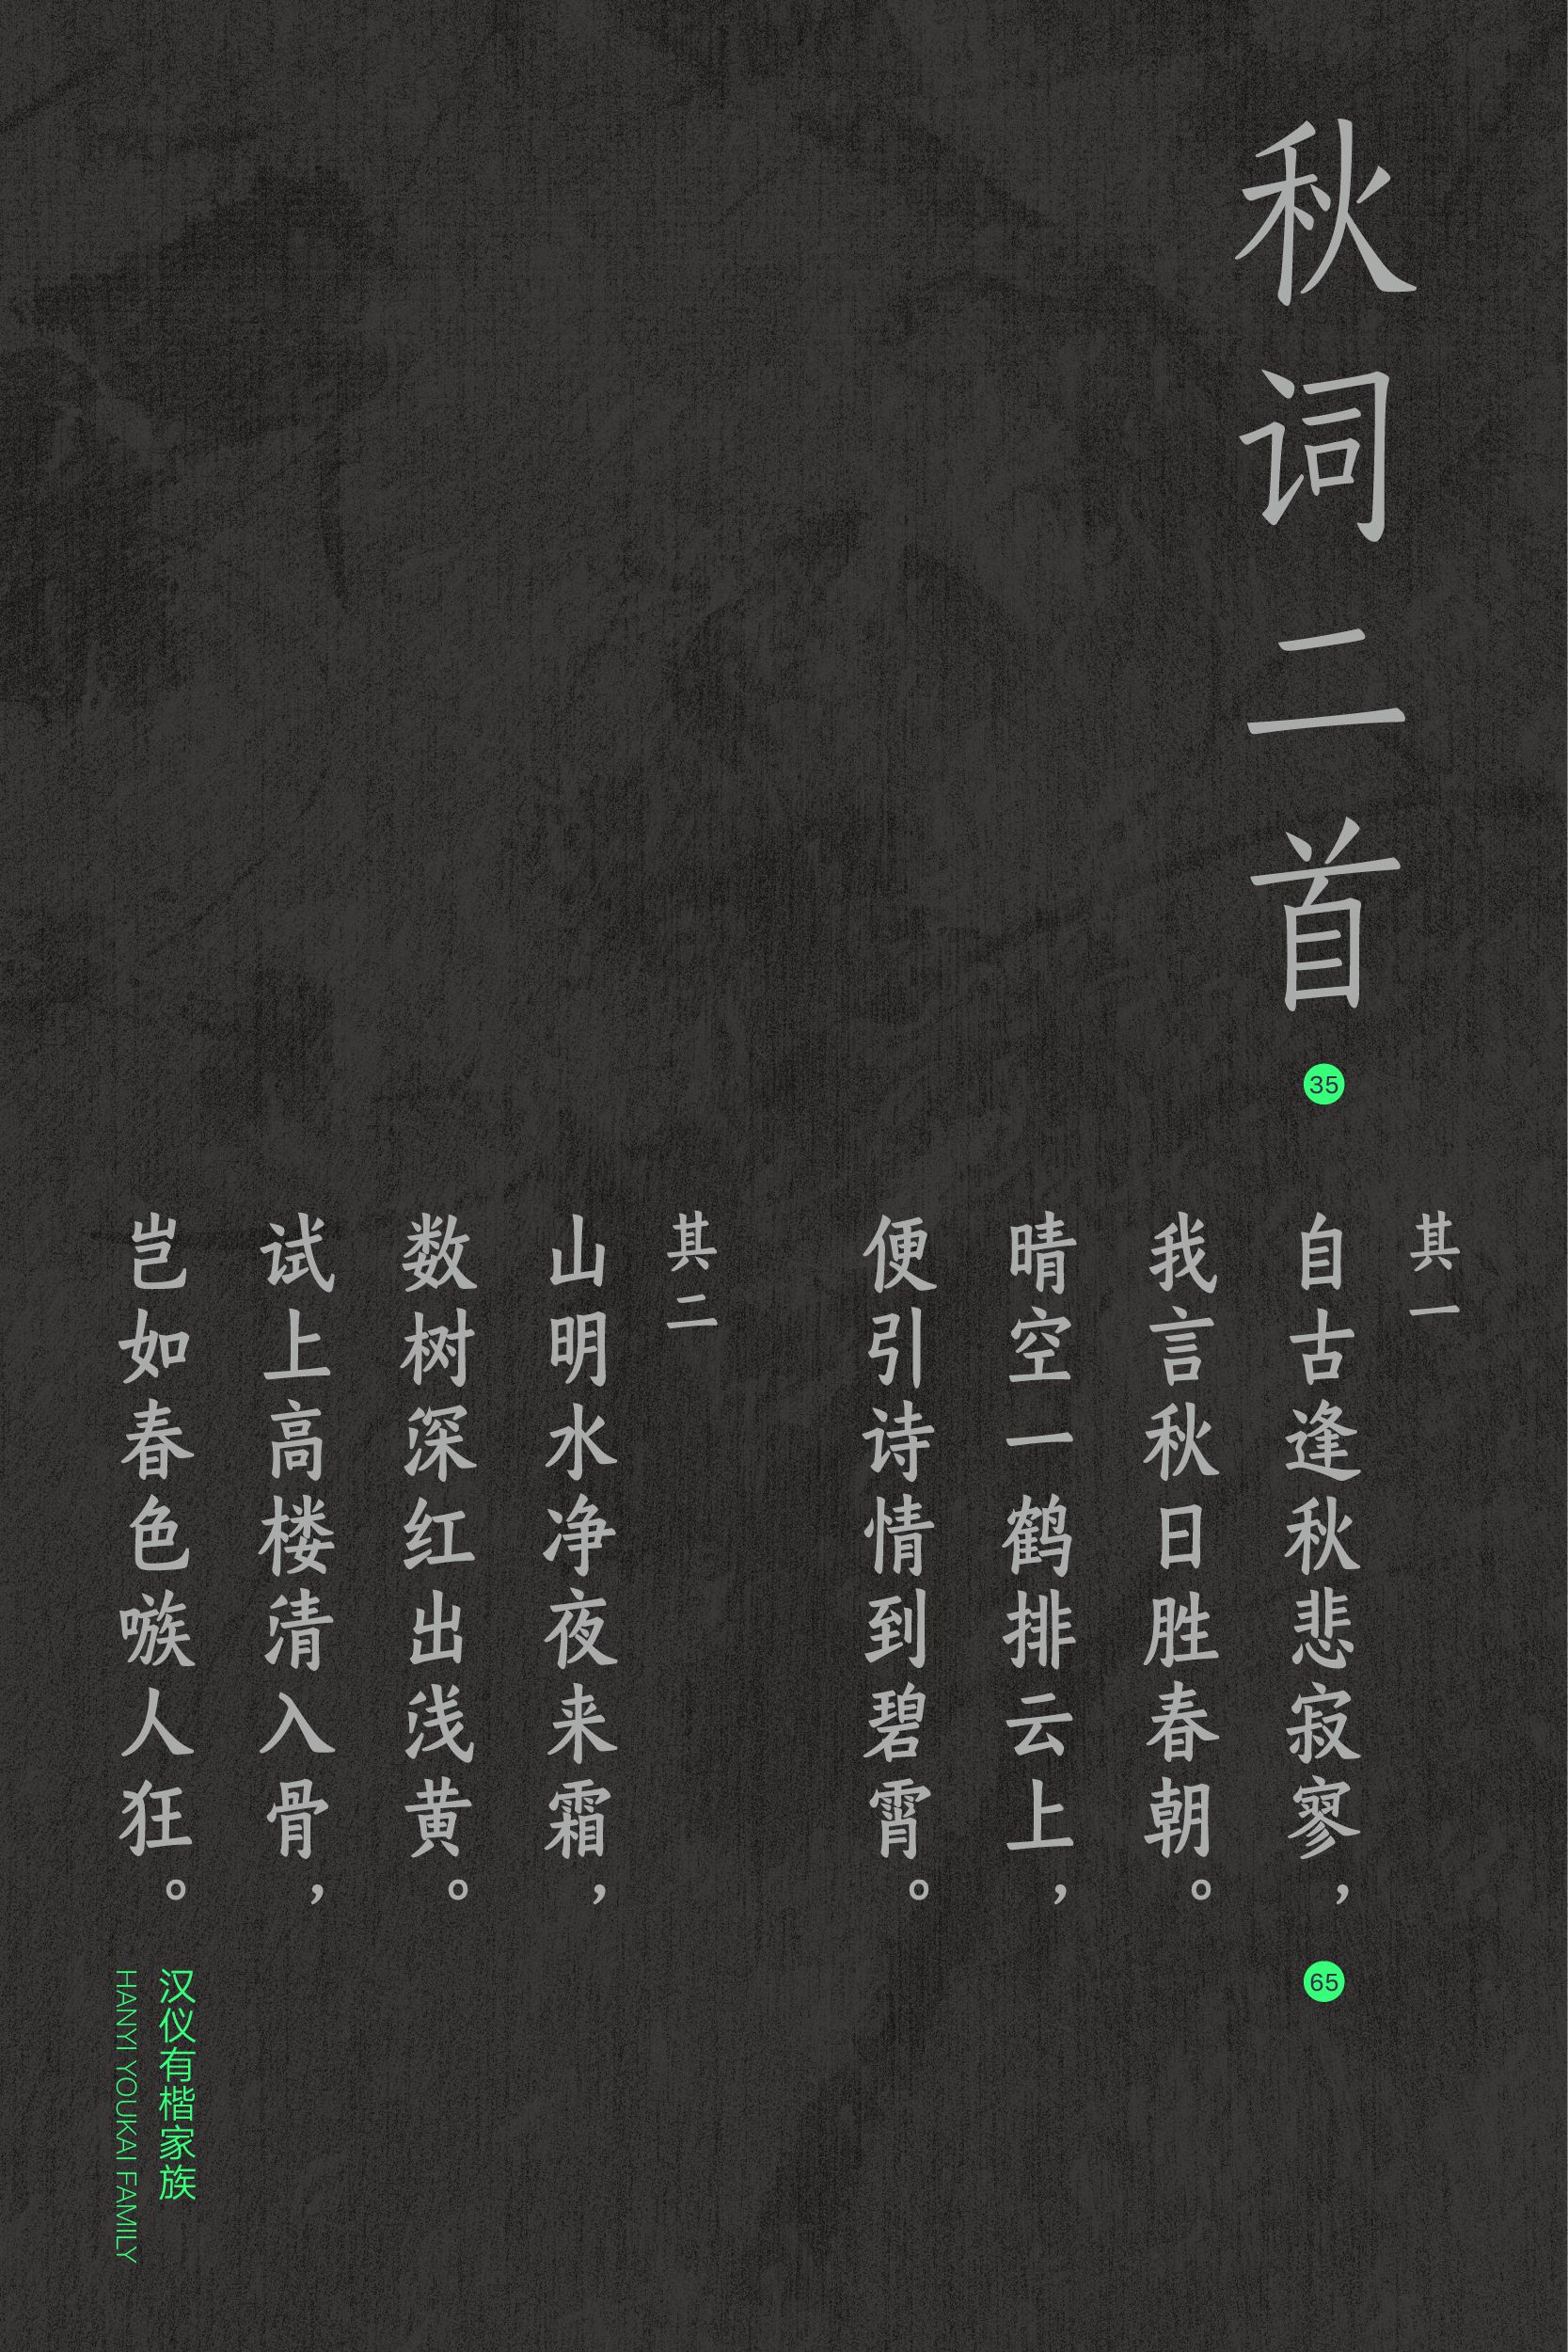 秋词二首
35
其一
自古逢秋悲寂寥，
我言秋日胜春朝。
晴空一鹤排云上，
便引诗情到碧霄。
65
其二
山明水净夜来霜，
数树深红出浅黄。
试上高楼清入骨，
岂如春色嗾人狂。
汉仪有楷家族
HANYI YOUKAI FAMILY